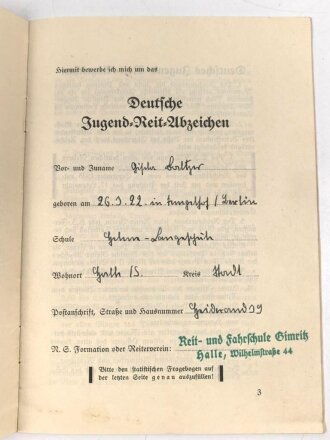 Hiermit bewerbe ich mich um das
Deutsche
Jugend-Reit-Abzeichen
Vor- und Zuname Gisela Baltzer
geboren am 26.3.22 in Tempelhof / Berlin
Schule Helene-Langeschule
Wohnort Halle /S. Kreis Stadt
Postanschrift, Straße und Hausnummer Heiderand 39
N. S. Formation oder Reiterverein:
Reit- und Fahrschule Gimritz
Halle, Wilhelmstraße 44
Bitte den statistischen Fragebogen auf
der letzten Seite genau auszufüllen!
3